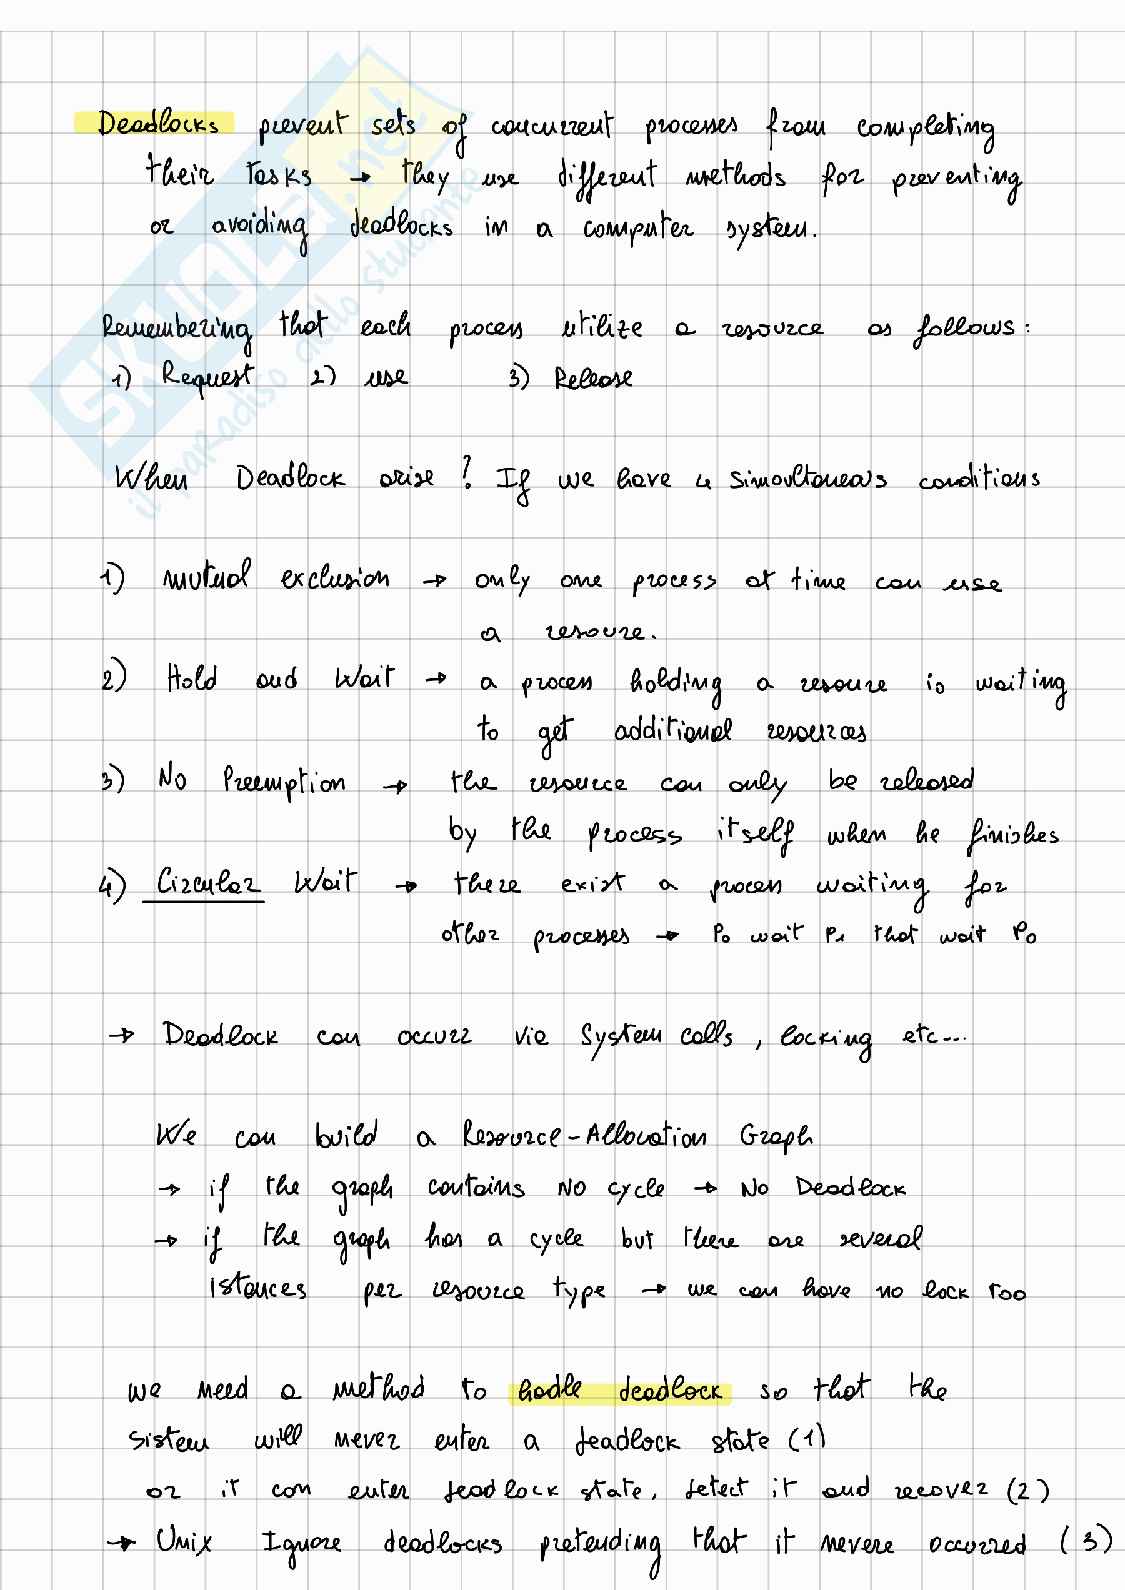 Deadlocks prevent sets of concurrent processes from completing
their tasks → they use different methods for preventing
or avoiding deadlocks in a computer system.
Remembering that each process utilize a resource as follows:
1) Request 2) use 3) Release
When Deadlock arise? If we have 4 simoultaneous conditions
1) mutual exclusion → only one process at time can use
a resource.
2) Hold and Wait → a process holding a resource is waiting
to get additional resources
3) No Preemption → the resource can only be released
by the process itself when he finishes
4) Circular Wait → there exist a process waiting for
other processes → P0 wait P1 that wait P0
→ Deadlock can occurr via System calls, locking etc...
We can build a Resource-Allocation Graph
→ if the graph contains NO cycle → No Deadlock
→ if the graph has a cycle but there are several
istances per resource type → we can have no lock too
we need a method to hadle deadlock so that the
sistem will never enter a deadlock state (1)
or it can enter deadlock state, detect it and recover (2)
→ Unix Ignore deadlocks pretending that it nevere occurred (3)
SKUOLA.net
il paradiso dello studente